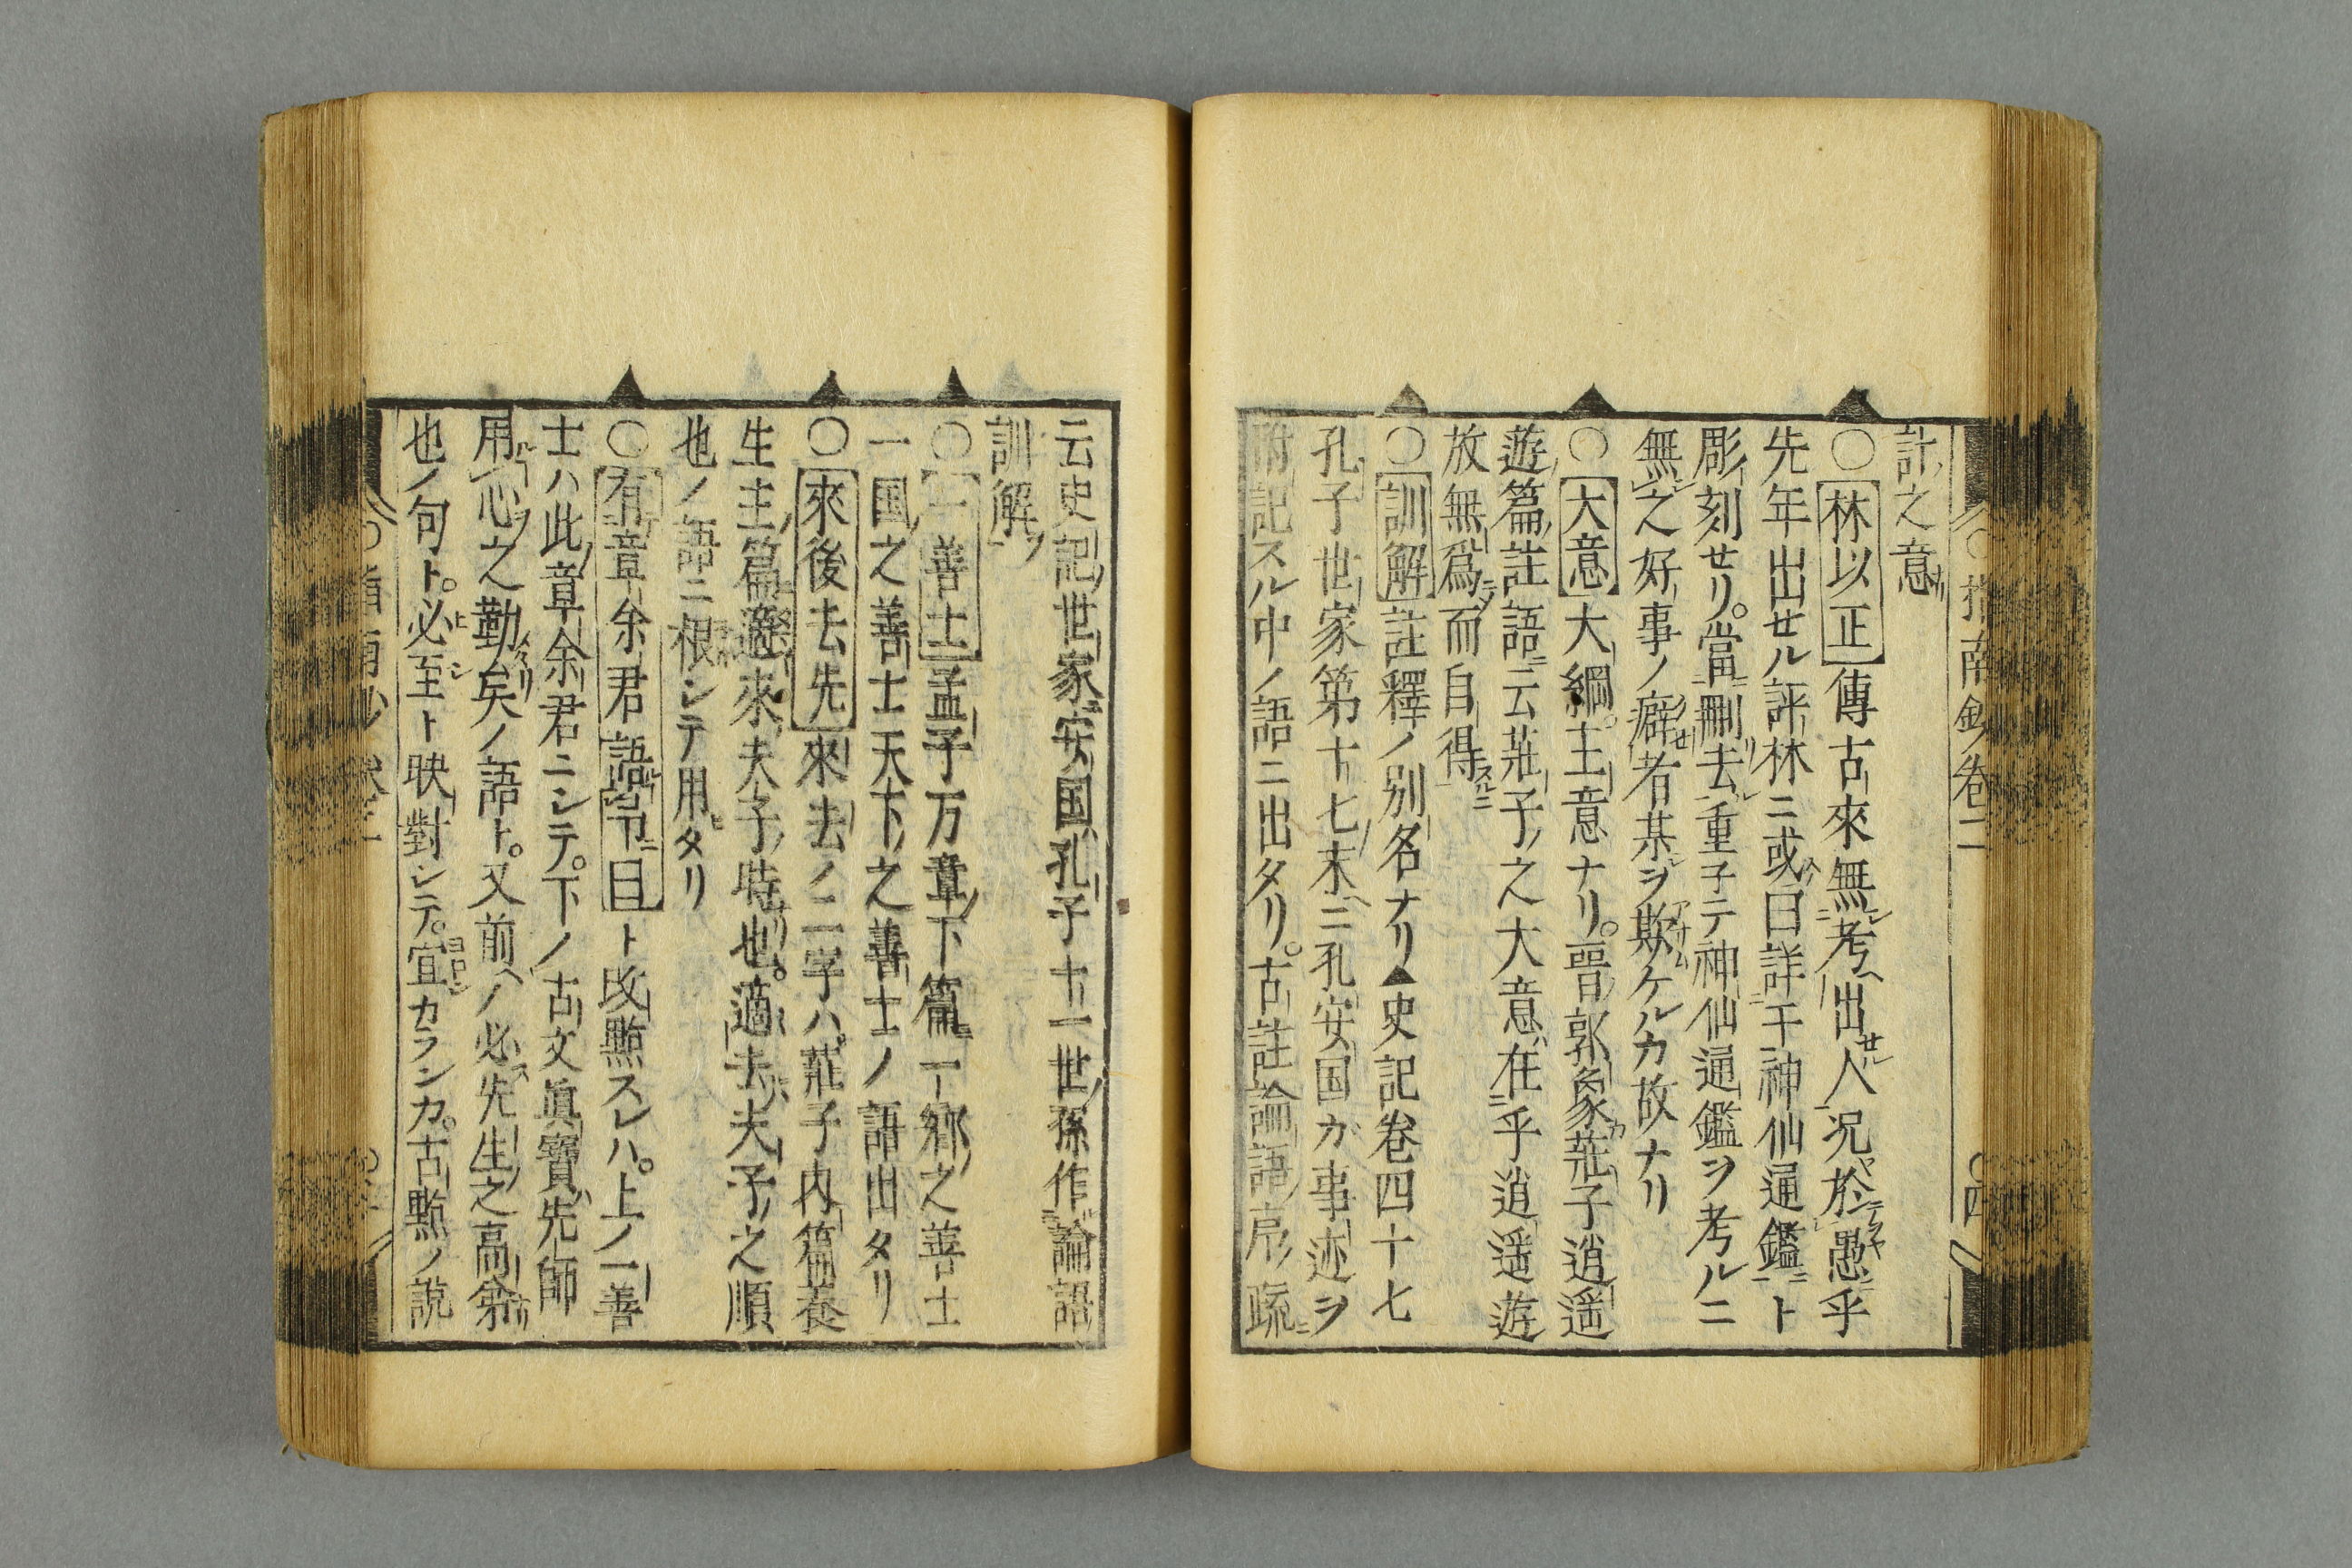 指南鈔卷二
計之意
○林以正傳古來無考出人況於愚乎
先年出せル評林ニ或曰詳于神仙通鑑ト
彫刻せリ。當刪去重子テ神仙通鑑ヲ考ルニ
無之好事ノ癖者某ヲ欺ケルカ故ナリ
○大意大綱。主意ナリ。晉郭象莊子逍遥
遊篇註語云莊子之大意在乎逍遥遊
放無爲而自得
○訓解註釋ノ別名ナリ▲史記卷四十七
孔子世家第十七末ニ孔安国カ事迹ヲ
附記スル中ノ語ニ出タリ。古註論語序疏
云史記世家安国孔子十一世孫作論語
訓解
○一善士孟子万章下篇一郷之善士
一国之善士天下之善士ノ語出タリ
○來後去先來去ノ二字ハ。莊子内篇養
生主篇適來夫子時也。適去夫子之順
也ノ語ニ根シテ用タリ
○有章余君語令目ト改點スレハ。上ノ一善
士ハ此章余君ニシテ。下ノ古文眞寶先師
用心之勤矣ノ語ト。又前ノ必先生之高弟
也ノ句ト。必至ト映對シテ。宜カランカ。古點ノ說